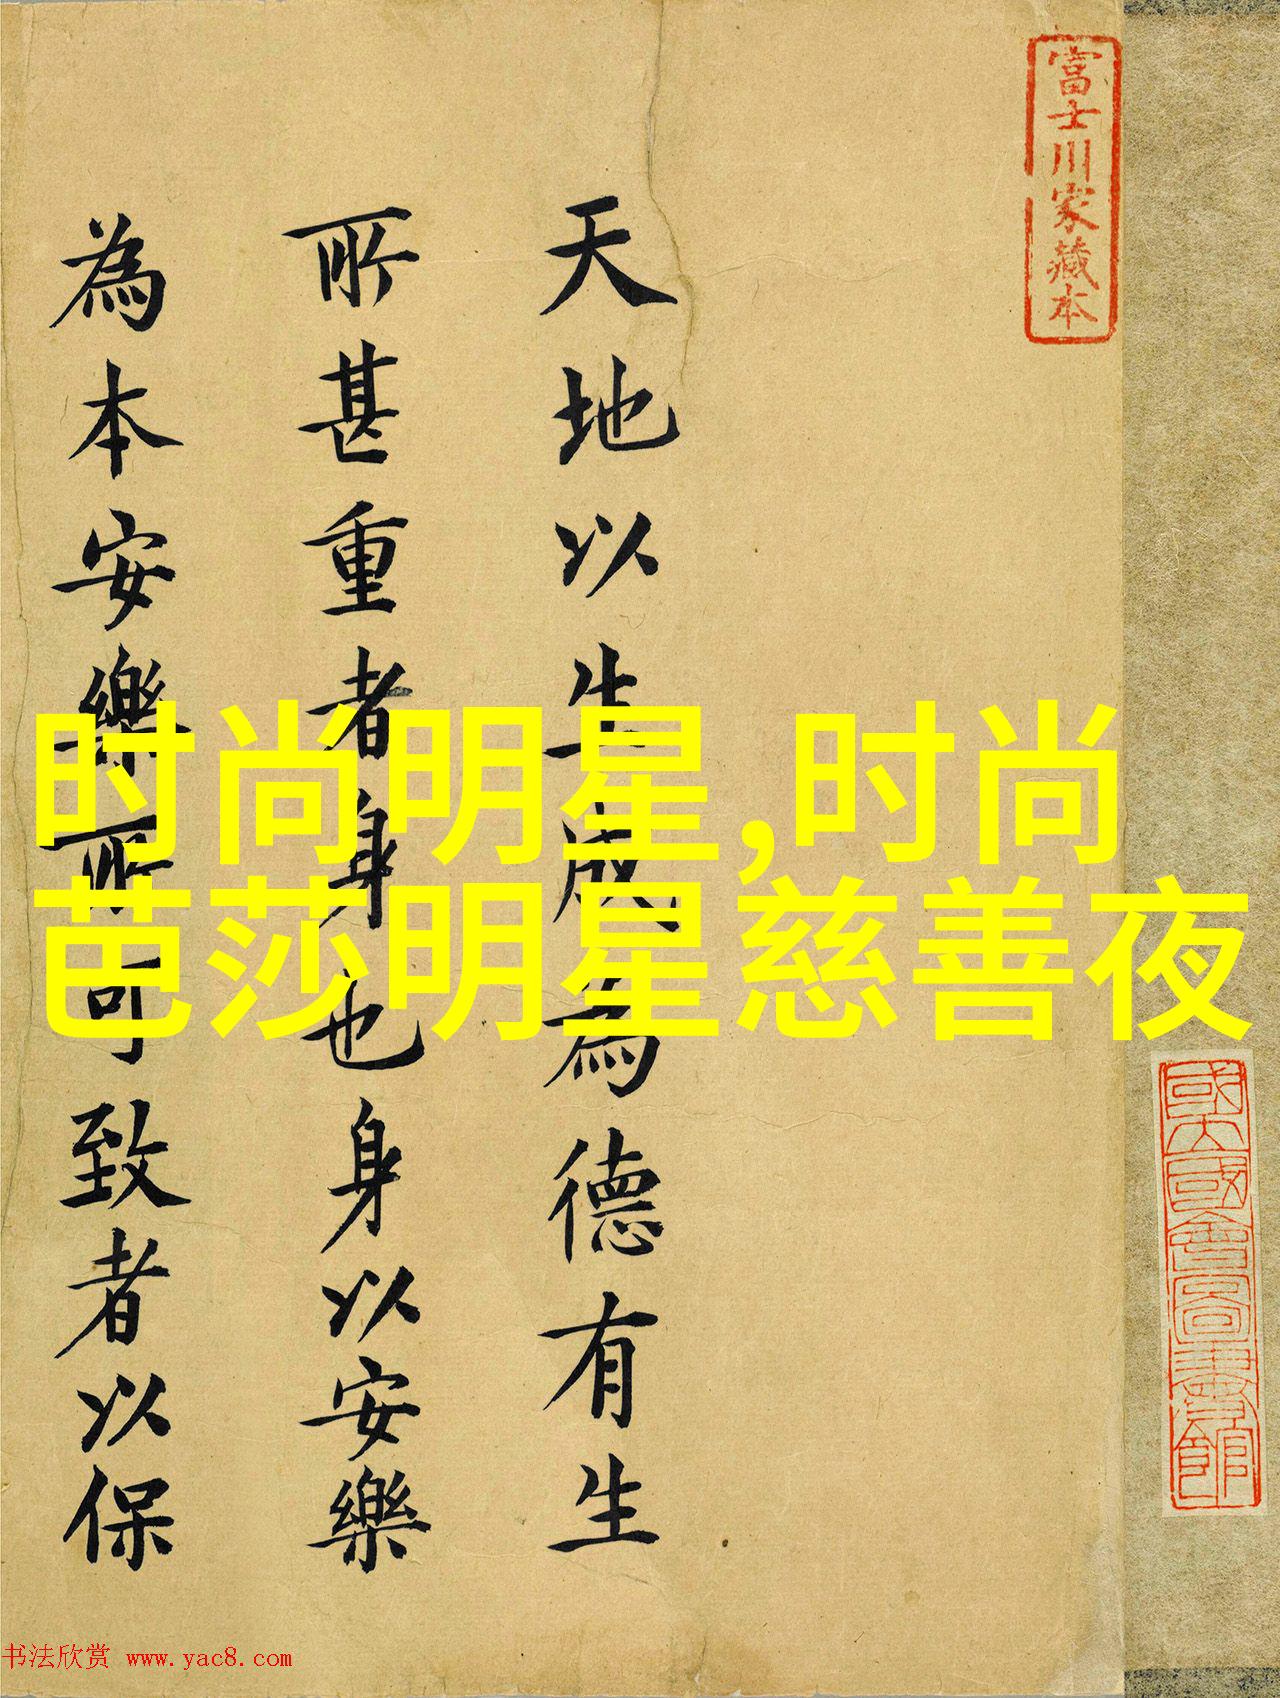 富士川家藏本
天地以生成為德有生
所甚重者身也身以安樂
為本安樂所可致者以保
时尚明星,时尚
芭莎明星慈善夜
國立國會圖書館
书法欣赏 www.yac8.com